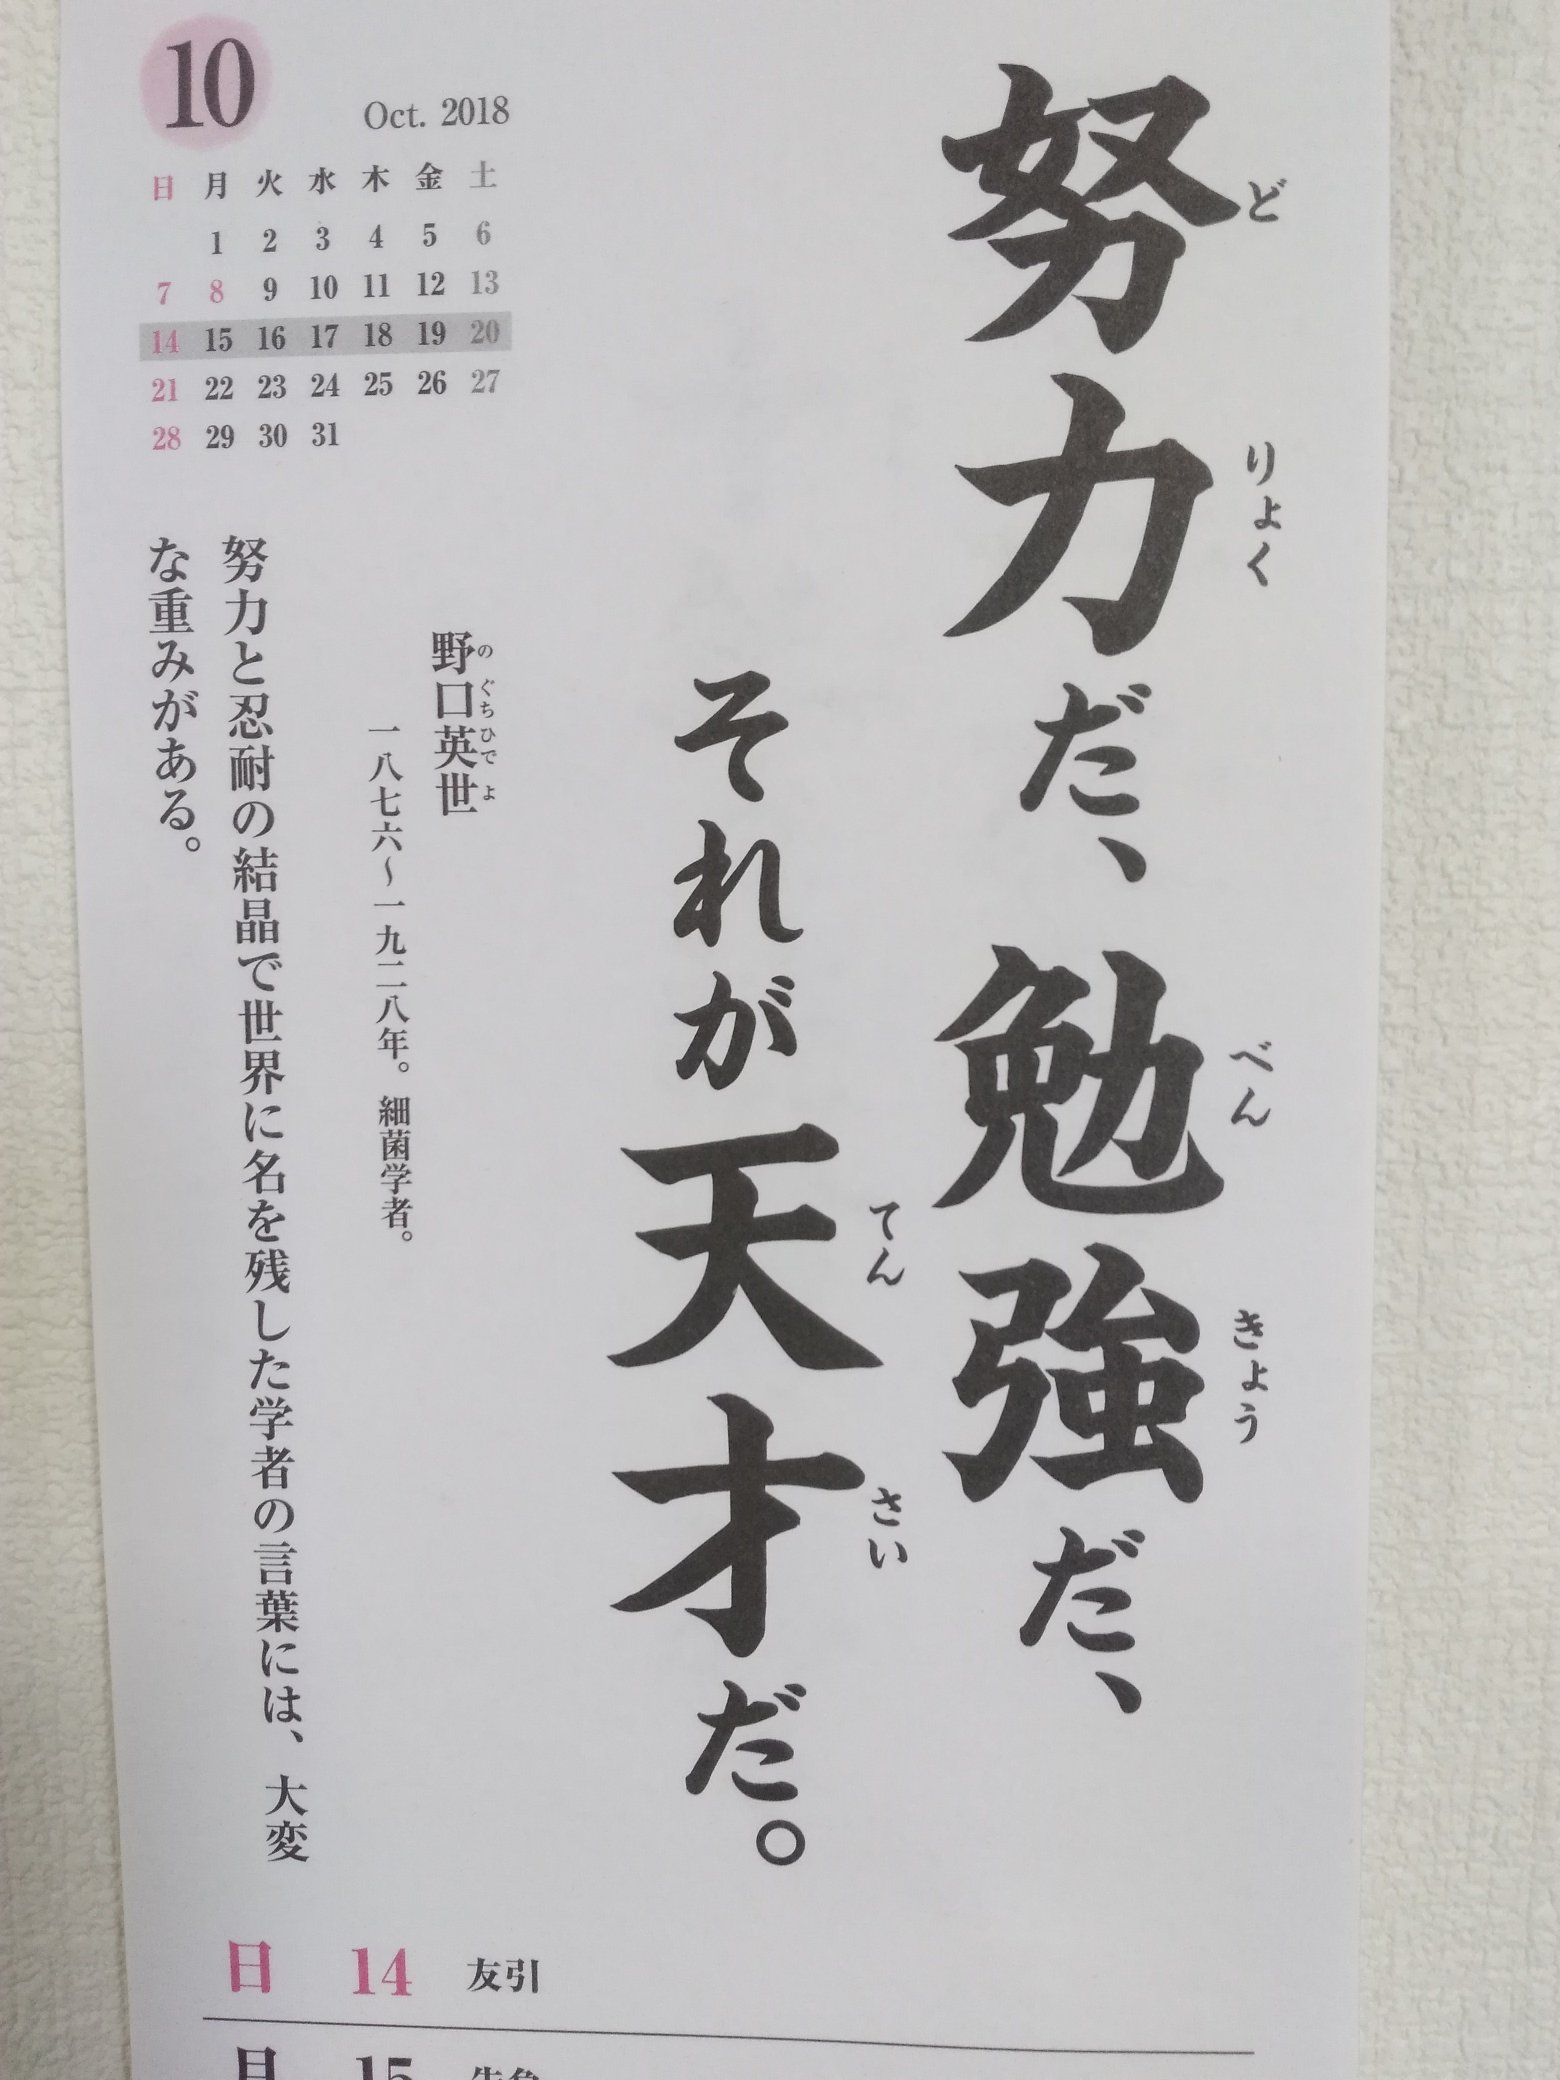 努力だ、勉強だ、
どりょく
べんきょう
それが天才だ。
てんさい
野口英世
のぐちひでよ
一八七六〜一九二八年。細菌学者。
努力と忍耐の結晶で世界に名を残した学者の言葉には、大変
な重みがある。
10
Oct. 2018
日 月 火 水 木 金 土
1 2 3 4 5 6
7 8 9 10 11 12 13
14 15 16 17 18 19 20
21 22 23 24 25 26 27
28 29 30 31
日 14 友引
月 15 先負